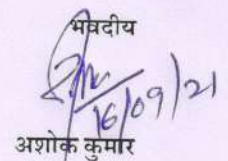 भवदीय
16/09/21
अशोक कुमार